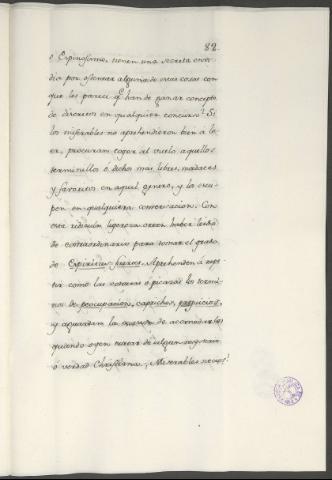 82
ó Espinosismo, tienen una secreta envi-
dia por ostentar alguna de estas cosas con
que les parece q.e han de ganar concepto
de discretos en qualquier concurso? Si
los miserables no aprehendieron bien a le-
er, procuran coger al vuelo aquellos
terminillos ó dichos mas libres, mordaces
y favoritos en aquel genero, y los escu-
pen en qualquiera conversacion. Con
esta ridicula ligereza creen haber leido
lo extraordinario para tomar el grado
de Espiritus fuertes. Aprehenden á repe-
tir como las cotorras ó picazas los termi-
nos de preocupacion, caprichos, perjuicios,
y aguardan la de acomodarlos
quando oyen tratar de algun mysterio
ó verdad Christiana. Miserables necios!